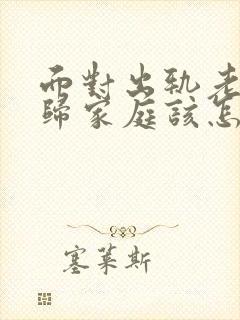 面對出軌老
歸家庭該怎
塞萊斯